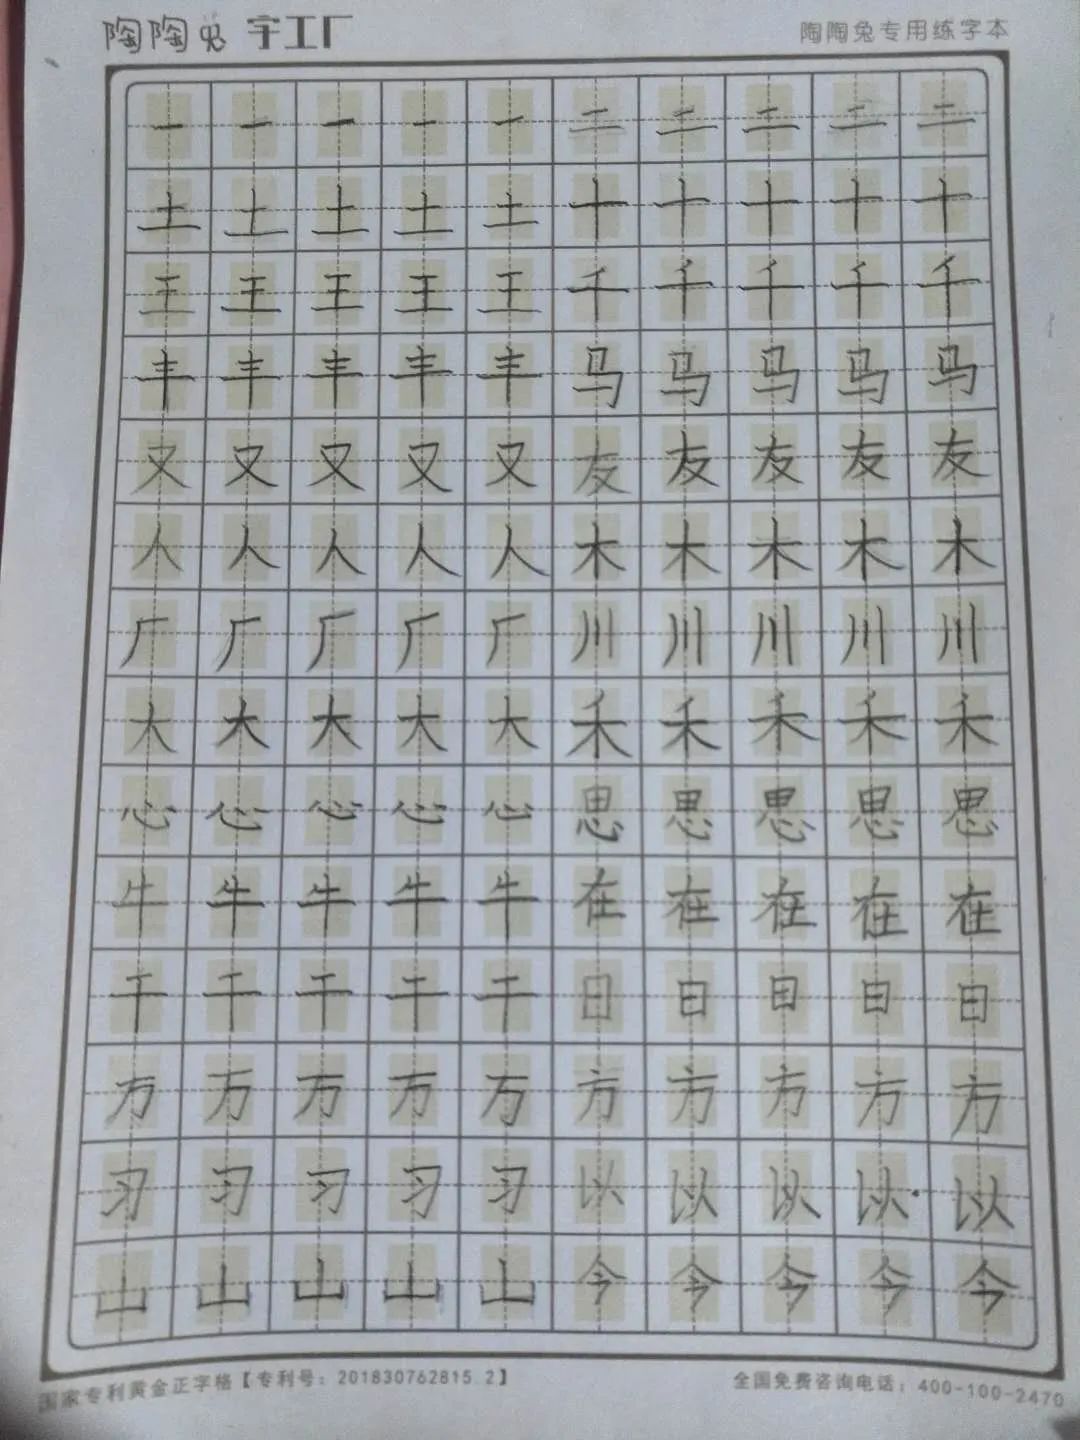 陶陶兔 字工厂
陶陶兔专用练字本
一一一一一二二二二二
土土土土土十十十十十
王王王王王千千千千千
丰丰丰丰丰马马马马马
又又又又又友友友友友
人人人人人木木木木木
厂厂厂厂厂川川川川川
大大大大大禾禾禾禾禾
心心心心心思思思思思
牛牛牛牛牛在在在在在
干干干干干日日日日日
万万万万万方方方方方
习习习习习以以以以以
山山山山山今今今今今
国家专利黄金正字格【专利号：201830762815.2】
全国免费咨询电话：400-100-2470